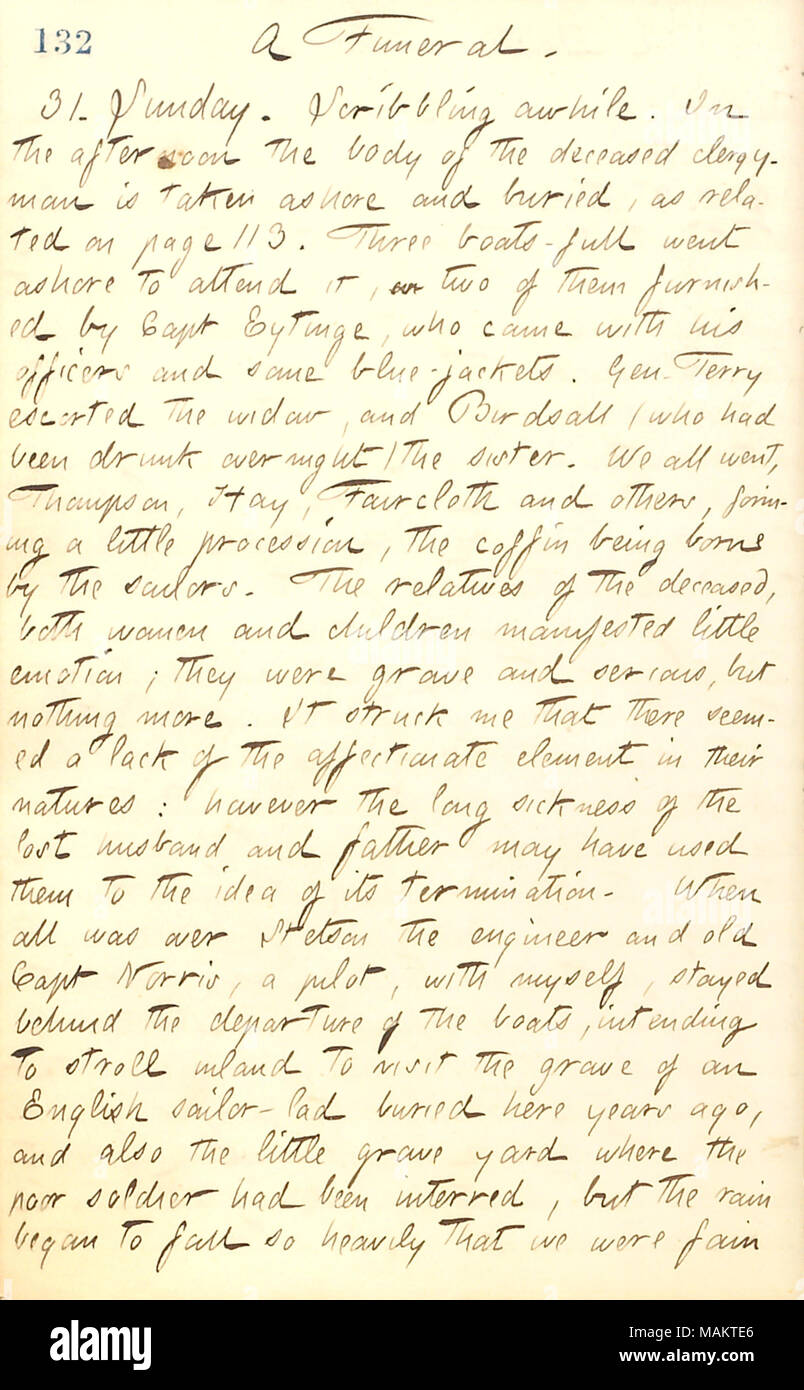 132 A Funeral.
31. Sunday. Scribbling awhile. In
the afternoon the body of the deceased clergy-
man is taken ashore and buried, as rela-
ted on page 113. Three boats-full went
ashore to attend it, two of them furnish-
ed by Capt Eytinge, who came with his
officers and some blue-jackets. Gen. Terry
escorted the widow, and Birdsall (who had
been drunk over night) the sister. We all went,
Thompson, Hay, Faircloth and others, form-
ing a little procession, the coffin being borne
by the sailors. The relatives of the deceased,
both women and children manifested little
emotion; they were grave and serious, but
nothing more. It struck me that there seem-
ed a lack of the affectionate element in their
natures: however the long sickness of the
lost husband and father may have used
them to the idea of its termination. When
all was over Stetson the engineer and old
Capt Norris, a pilot, with myself, stayed
behind the departure of the boats, intending
to stroll inland to visit the grave of an
English sailor-lad buried here years ago,
and also the little grave yard where the
poor soldier had been interred, but the rain
began to fall so heavily that we were fain
alamy
Image ID: MAKTE6
www.alamy.com